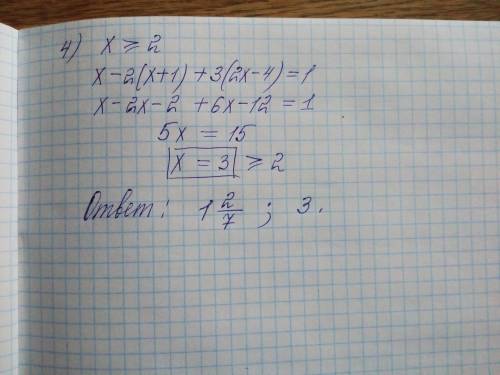 4) x ⩾ 2
x - 2(x+1) + 3(2x-4) = 1
x - 2x - 2 + 6x - 12 = 1
5x = 15
x = 3 ⩾ 2
Ответ: 1 2/7 ; 3.